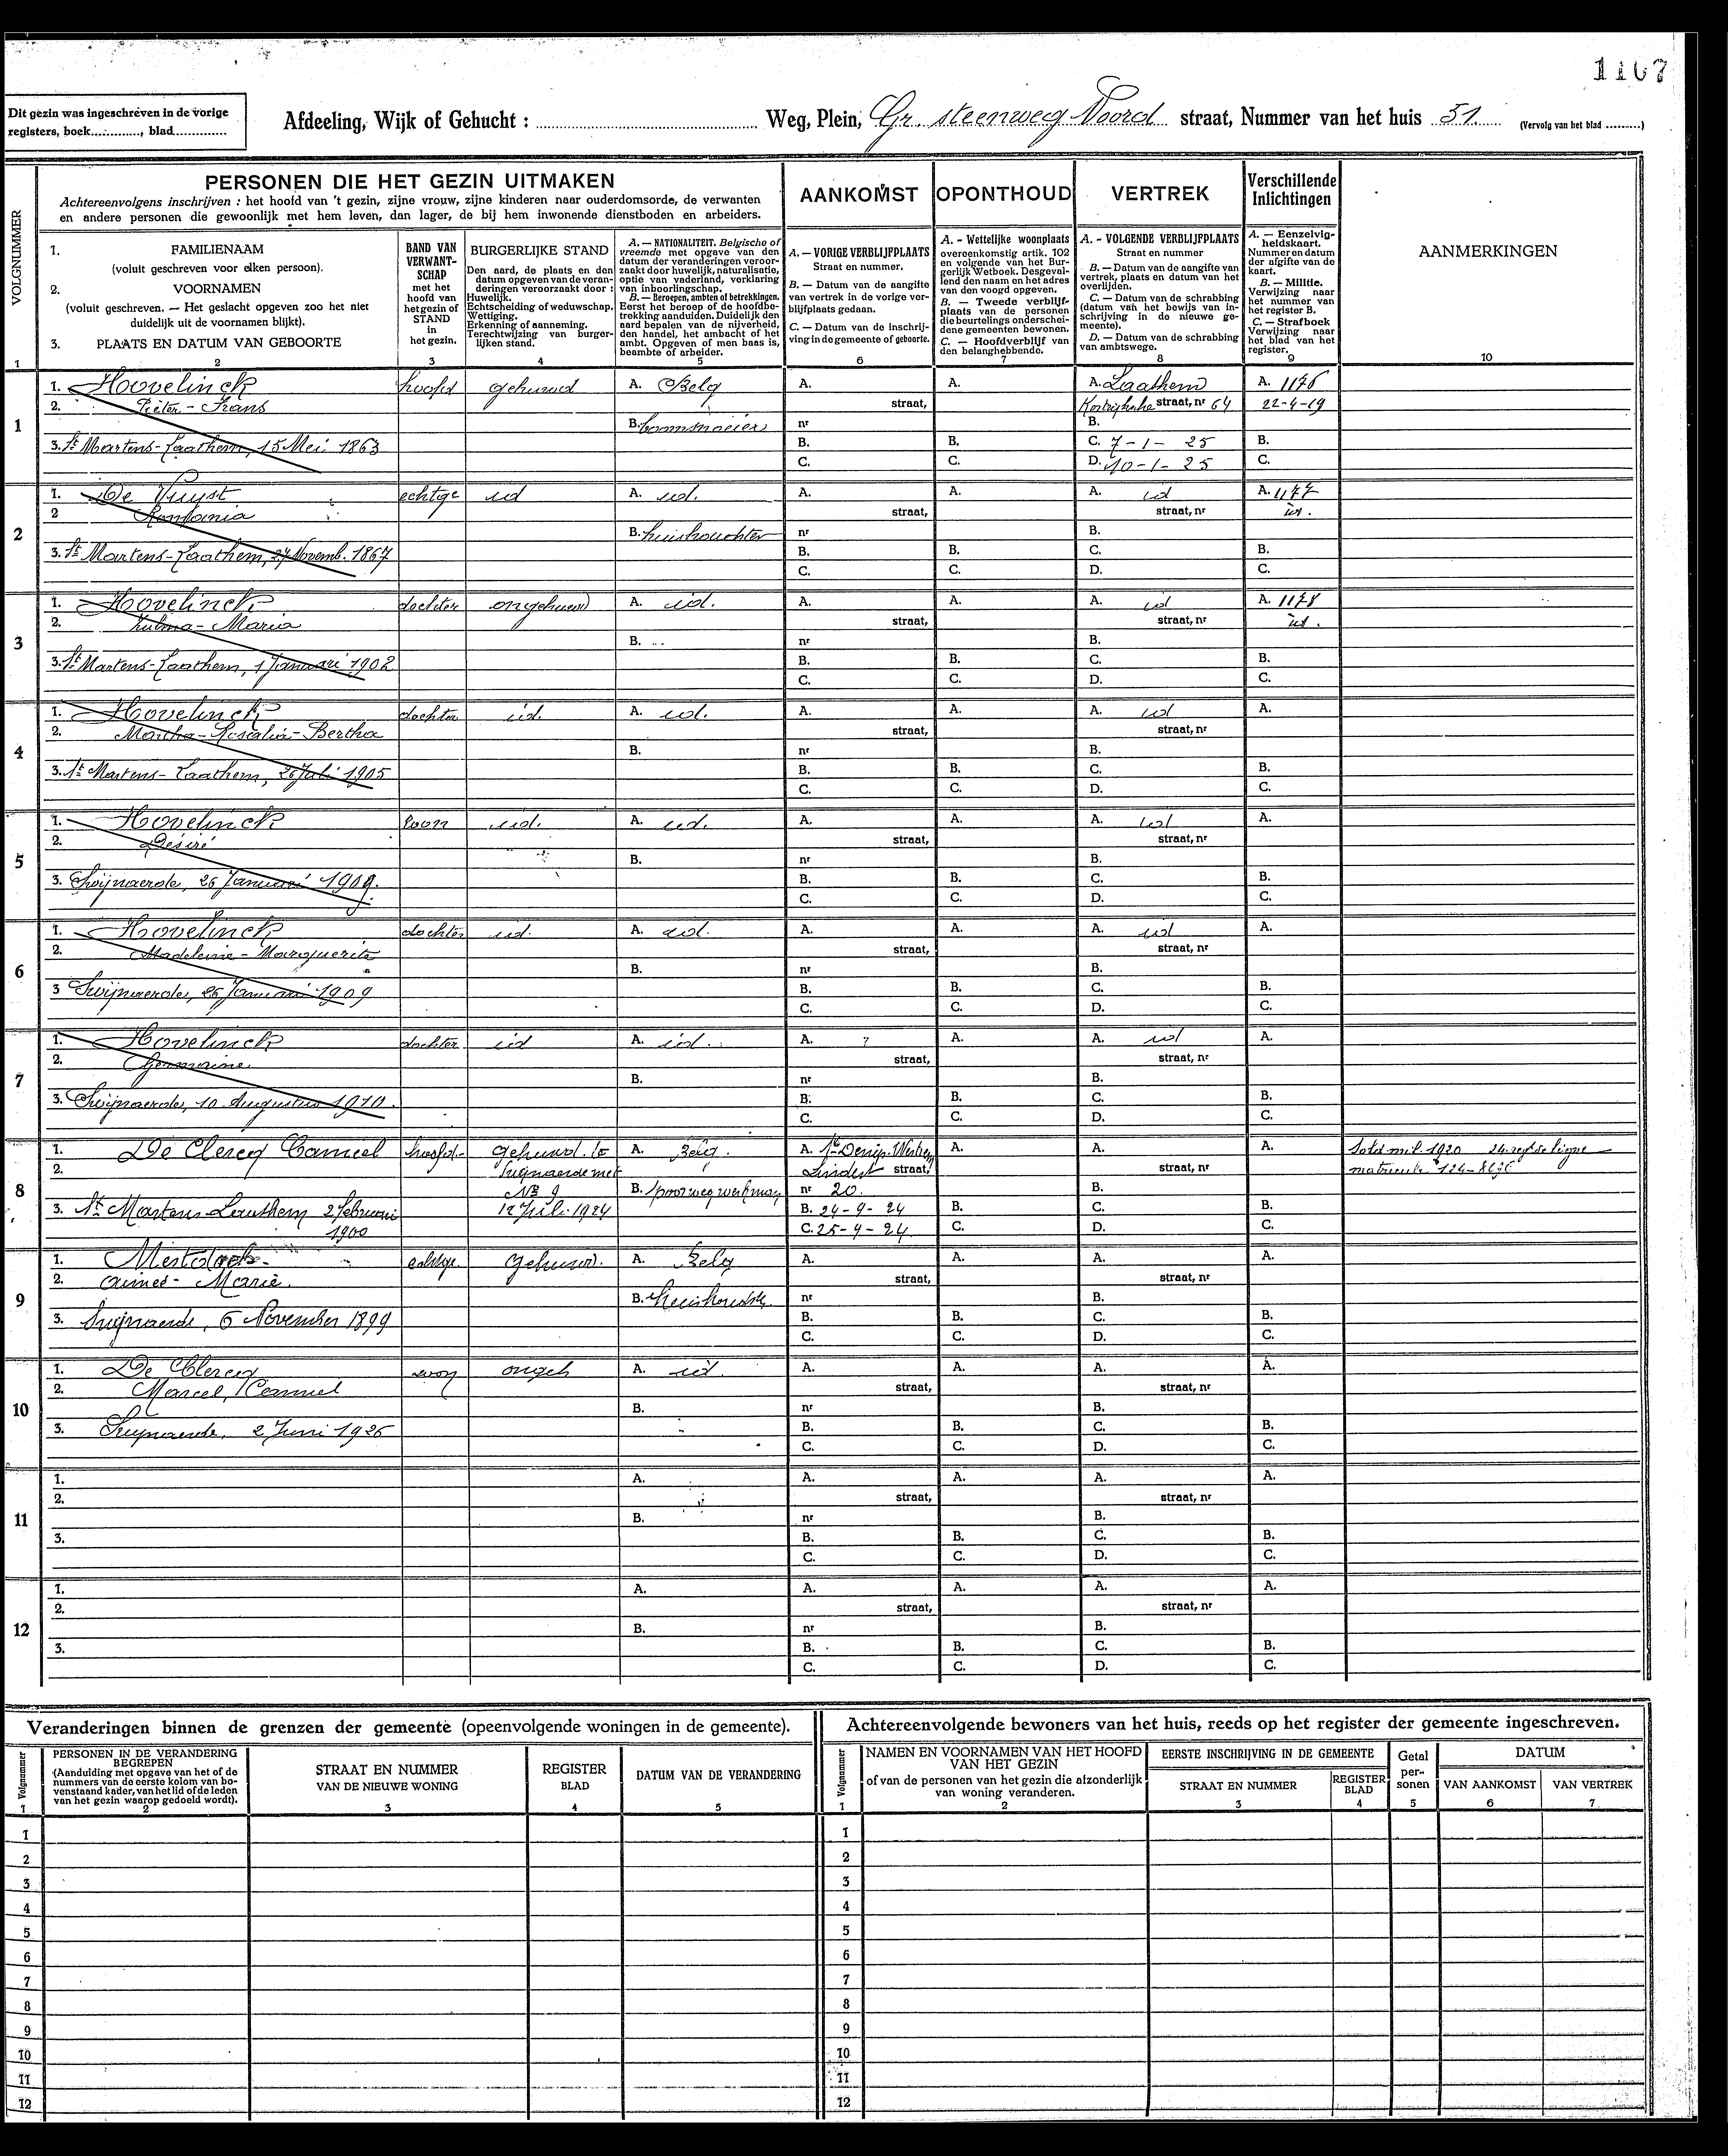 1107
Dit gezin was ingeschreven in de vorige
registers, boek............, blad.............
Afdeeling, Wijk of Gehucht : ........................ Weg, Plein, Gr. steenweg Noord straat, Nummer van het huis 51. (Vervolg van het blad .........)
PERSONEN DIE HET GEZIN UITMAKEN
Achtereenvolgens inschrijven : het hoofd van 't gezin, zijne vrouw, zijne kinderen naar ouderdomsorde, de verwanten
en andere personen die gewoonlijk met hem leven, dan lager, de bij hem inwonende dienstboden en arbeiders.
AANKOMST
OPONTHOUD
VERTREK
Verschillende
Inlichtingen
VOLGNUMMER
1
1. FAMILIENAAM
(voluit geschreven voor elken persoon).
2. VOORNAMEN
(voluit geschreven. — Het geslacht opgeven zoo het niet
duidelijk uit de voornamen blijkt).
3. PLAATS EN DATUM VAN GEBOORTE
2
BAND VAN
VERWANT-
SCHAP
met het
hoofd van
het gezin of
STAND
in
het gezin.
3
BURGERLIJKE STAND
Den aard, de plaats en den
datum opgeven van de veran-
deringen veroorzaakt door :
Huwelijk.
Echtscheiding of weduwschap.
Wettiging.
Erkenning of aanneming.
Terechtwijzing van burger-
lijken stand.
4
A. — NATIONALITEIT. Belgische of
vreemde met opgave van den
datum der veranderingen veroor-
zaakt door huwelijk, naturalisatie,
optie van vaderland, verklaring
van inboorlingschap.
B. — Beroepen, ambten of betrekkingen.
Eerst het beroep of de hoofdbe-
trekking aanduiden. Duidelijk den
aard bepalen van de nijverheid,
den handel, het ambacht of het
ambt. Opgeven of men baas is,
beambte of arbeider.
5
A. — VORIGE VERBLIJFPLAATS
Straat en nummer.
B. — Datum van de aangifte
van vertrek in de vorige ver-
blijfplaats gedaan.
C. — Datum van de inschrij-
ving in de gemeente of geboorte.
6
A. - Wettelijke woonplaats
overeenkomstig artik. 102
en volgende van het Bur-
gerlijk Wetboek. Desgeval-
lend den naam en het adres
van den voogd opgeven.
B. — Tweede verblijf-
plaats van de personen
die beurtelings onderschei-
dene gemeenten bewonen.
C. — Hoofdverblijf van
den belanghebbende.
7
A. - VOLGENDE VERBLIJFPLAATS
Straat en nummer
B. — Datum van de aangifte van
vertrek, plaats en datum van het
overlijden.
C. — Datum van de schrabbing
(datum van het bewijs van in-
schrijving in de nieuwe ge-
meente).
D. — Datum van de schrabbing
van ambtswege.
8
A. — Eenzelvig-
heidskaart.
Nummer en datum
der afgifte van de
kaart.
B. — Militie.
Verwijzing naar
het nummer van
het register B.
C. — Strafboek
Verwijzing naar
het blad van het
register.
9
AANMERKINGEN
10
1
1. Hovelinck hoofd gehuwd A. Belg A. A. A. Laathem A. 1176
2. Pieter - Frans straat, Kortrijksche straat, nr 64 22-4-19
B. boomsnoeier nr B.
3. St Martens-Laathem, 15 Mei 1863 B. B. C. 7-1-25 B.
C. C. D. 10-1-25 C.
2
1. De Vuyst echtge id A. id. A. A. A. id A. 1177
2 straat, straat, nr id.
B. huishoudster nr B.
3. St Martens-Laathem, 27 Novemb. 1867 B. B. C. B.
C. C. D. C.
3
1. Hovelinck dochter ongehuwd A. id. A. A. A. id A. 1178
2. Zulma - Maria straat, straat, nr id.
B. nr B.
3. St Martens-Laathem, 1 Januari 1902 B. B. C. B.
C. C. D. C.
4
1. Hovelinck dochter id. A. id. A. A. A. id A.
2. Martha - Rosalia - Bertha straat, straat, nr
B. nr B.
3. St Martens-Laathem, 26 Juli 1905 B. B. C. B.
C. C. D. C.
5
1. Hovelinck zoon id. A. id. A. A. A. id A.
2. Désiré straat, straat, nr
B. nr B.
3. Swijnaerde, 26 Januari 1909. B. B. C. B.
C. C. D. C.
6
1. Hovelinck dochter id. A. id. A. A. A. id A.
2. Madeleine - Marguerite straat, straat, nr
B. nr B.
3 Swijnaerde, 26 Januari 1909 B. B. C. B.
C. C. D. C.
7
1. Hovelinck dochter id A. id. A. ? A. A. id A.
2. Germaine straat, straat, nr
B. nr B.
3. Swijnaerde, 10 Augustus 1910. B. B. C. B.
C. C. D. C.
8
1. De Clercq Camiel hoofd- gehuwd te A. Belg. A. St Denijs-Westrem A. A. A. Sold. mil. 1920 24. regt de ligne
2. Swijnaerde met Lindest straat, straat, nr
No 9 B. spoorwegwerkman nr 20. B.
3. St Martens Leuthem 2 februari 12 Juli 1924 B. 24-9-24 B. C. B.
1900 C. 25-9-24 C. D. C.
9
1. echtge. gehuwd. A. Belg A. A. A. A.
2. Marie. straat, straat, nr
B. huishoudster nr B.
3. Swijnaerde, 6 November 1899 B. B. C. B.
C. C. D. C.
10
1. De Clercq zoon ongeh A. id. A. A. A. A.
2. Marcel, Camiel straat, straat, nr
B. nr B.
3. Swijnaerde, 2 Juni 1926 B. B. C. B.
C. C. D. C.
11
1. A. A. A. A. A.
2. straat, straat, nr
B. nr B.
3. B. B. C. B.
C. C. D. C.
12
1. A. A. A. A. A.
2. straat, straat, nr
B. nr B.
3. B. B. C. B.
C. C. D. C.
Veranderingen binnen de grenzen der gemeente (opeenvolgende woningen in de gemeente).
Volgnummer
1
PERSONEN IN DE VERANDERING
BEGREPEN
(Aanduiding met opgave van het of de
nummers van de eerste kolom van bo-
venstaand kader, van het lid of de leden
van het gezin waarop gedoeld wordt).
2
STRAAT EN NUMMER
VAN DE NIEUWE WONING
3
REGISTER
BLAD
4
DATUM VAN DE VERANDERING
5
1
2
3
4
5
6
7
8
9
10
11
12
Achtereenvolgende bewoners van het huis, reeds op het register der gemeente ingeschreven.
Volgnummer
1
NAMEN EN VOORNAMEN VAN HET HOOFD
VAN HET GEZIN
of van de personen van het gezin die afzonderlijk
van woning veranderen.
2
EERSTE INSCHRIJVING IN DE GEMEENTE
STRAAT EN NUMMER
3
REGISTER
BLAD
4
Getal
per-
sonen
5
DATUM
VAN AANKOMST
6
VAN VERTREK
7
1
2
3
4
5
6
7
8
9
10
11
12